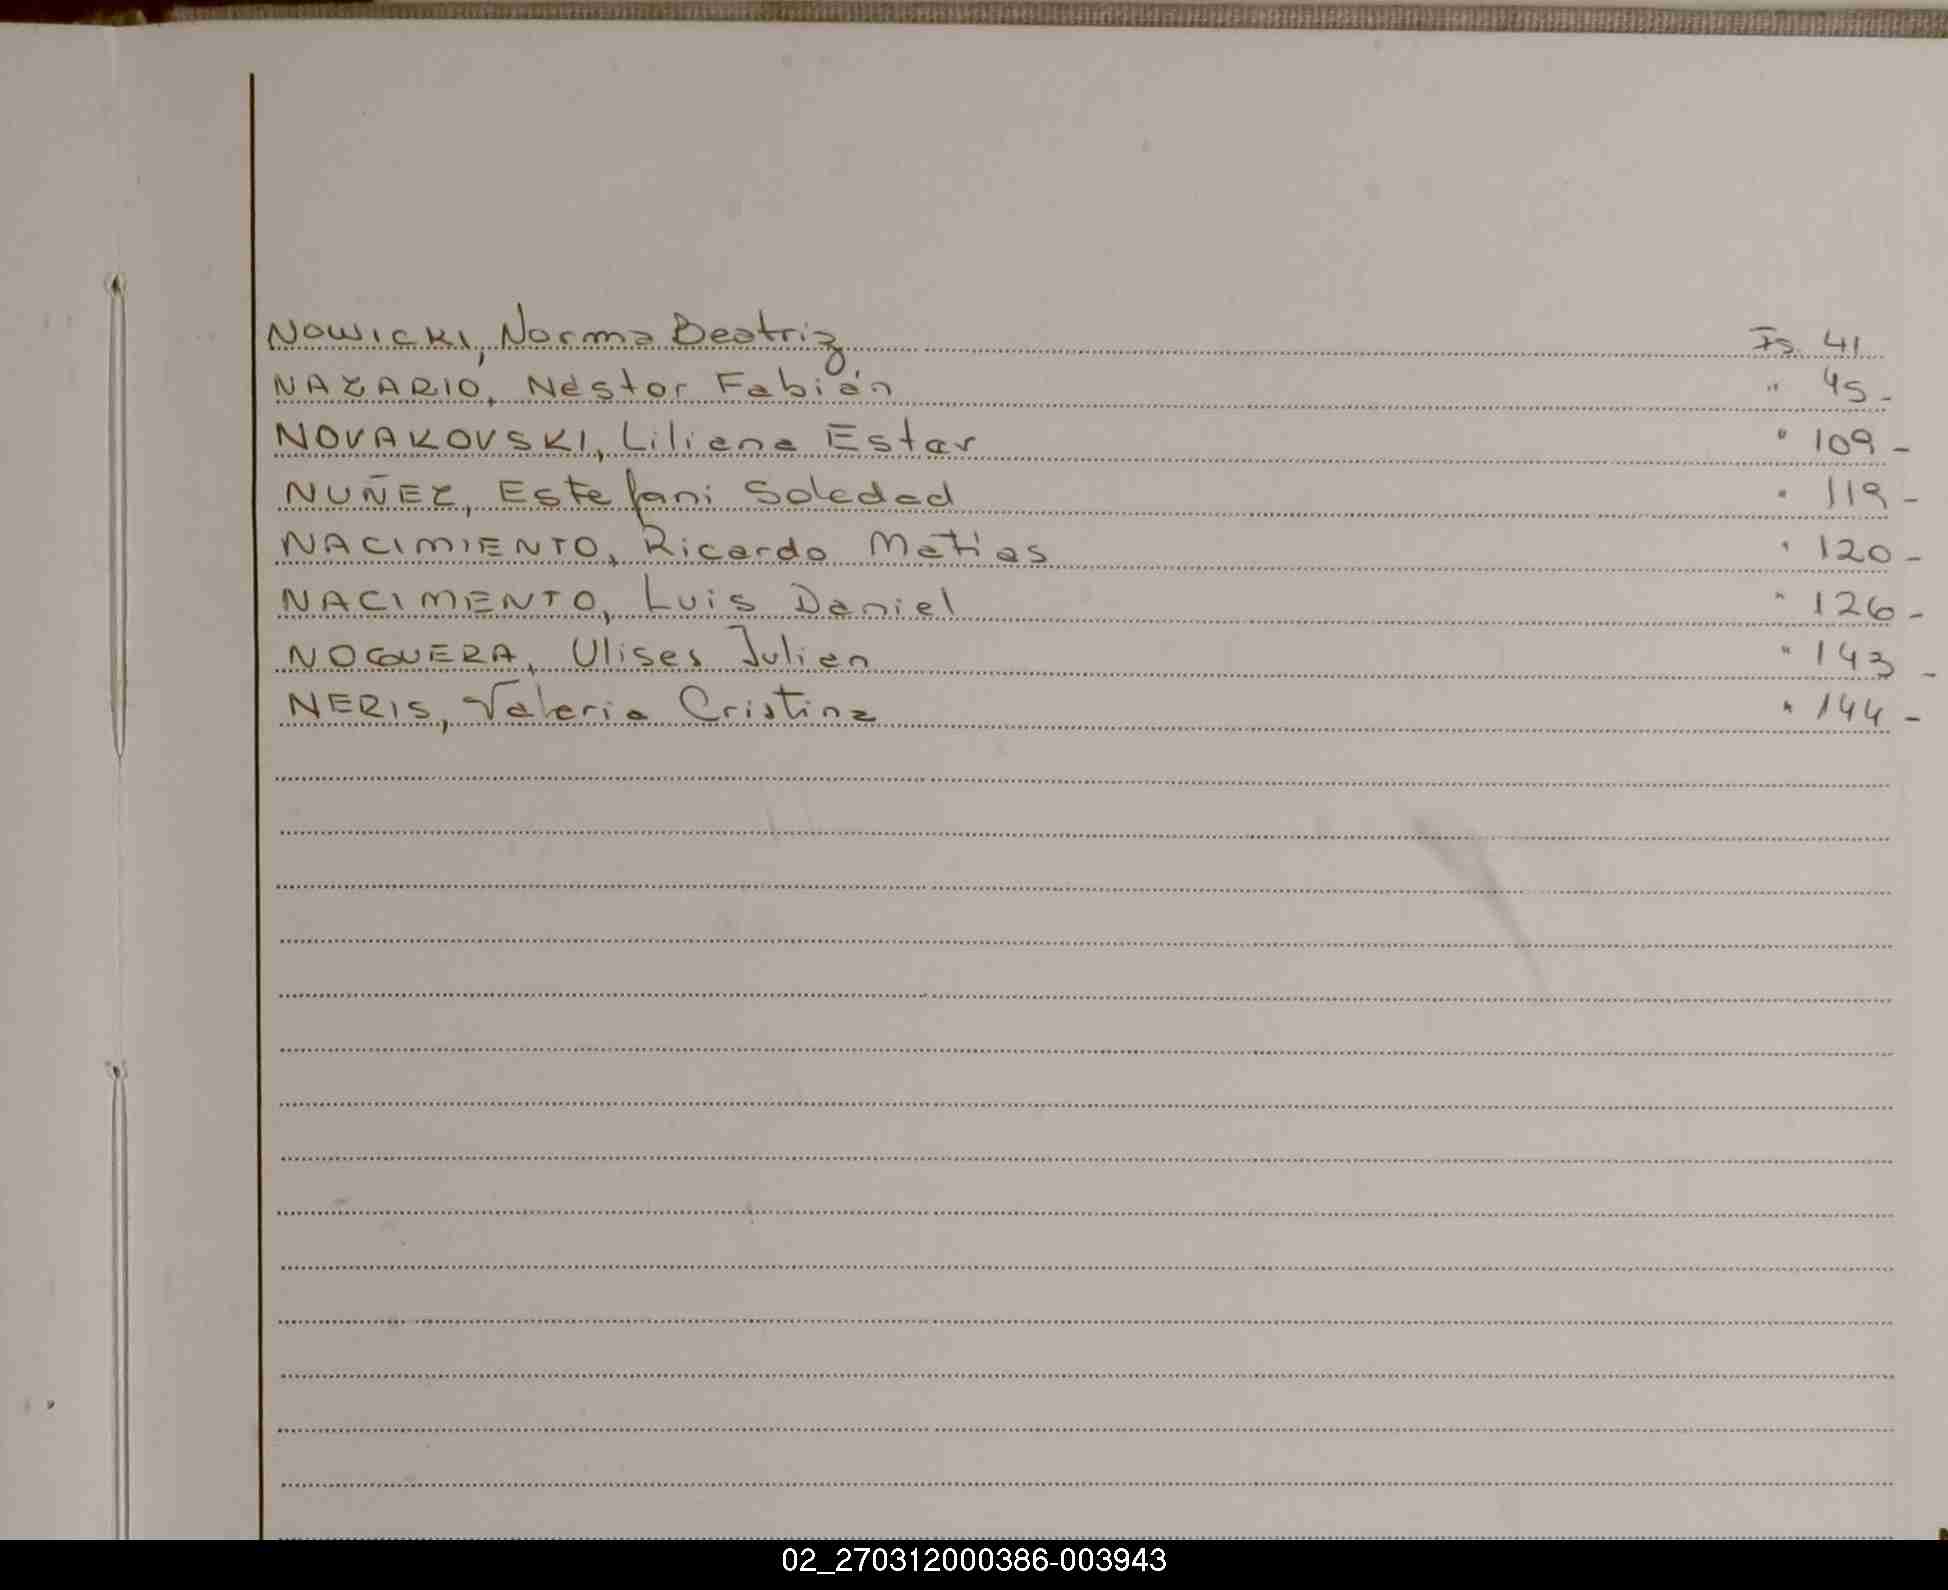 NOWICKI, Norma Beatriz Fs. 41
NAZARIO, Néstor Fabián " 45-
NOVAKOVSKI, Liliana Ester " 109-
NUÑEZ, Estefani Soledad " 119-
NACIMIENTO, Ricardo Matias " 120-
NACIMENTO, Luis Daniel " 126-
NOGUERA, Ulises Julien " 143-
NERIS, Valeria Cristina " 144-
02_270312000386-003943